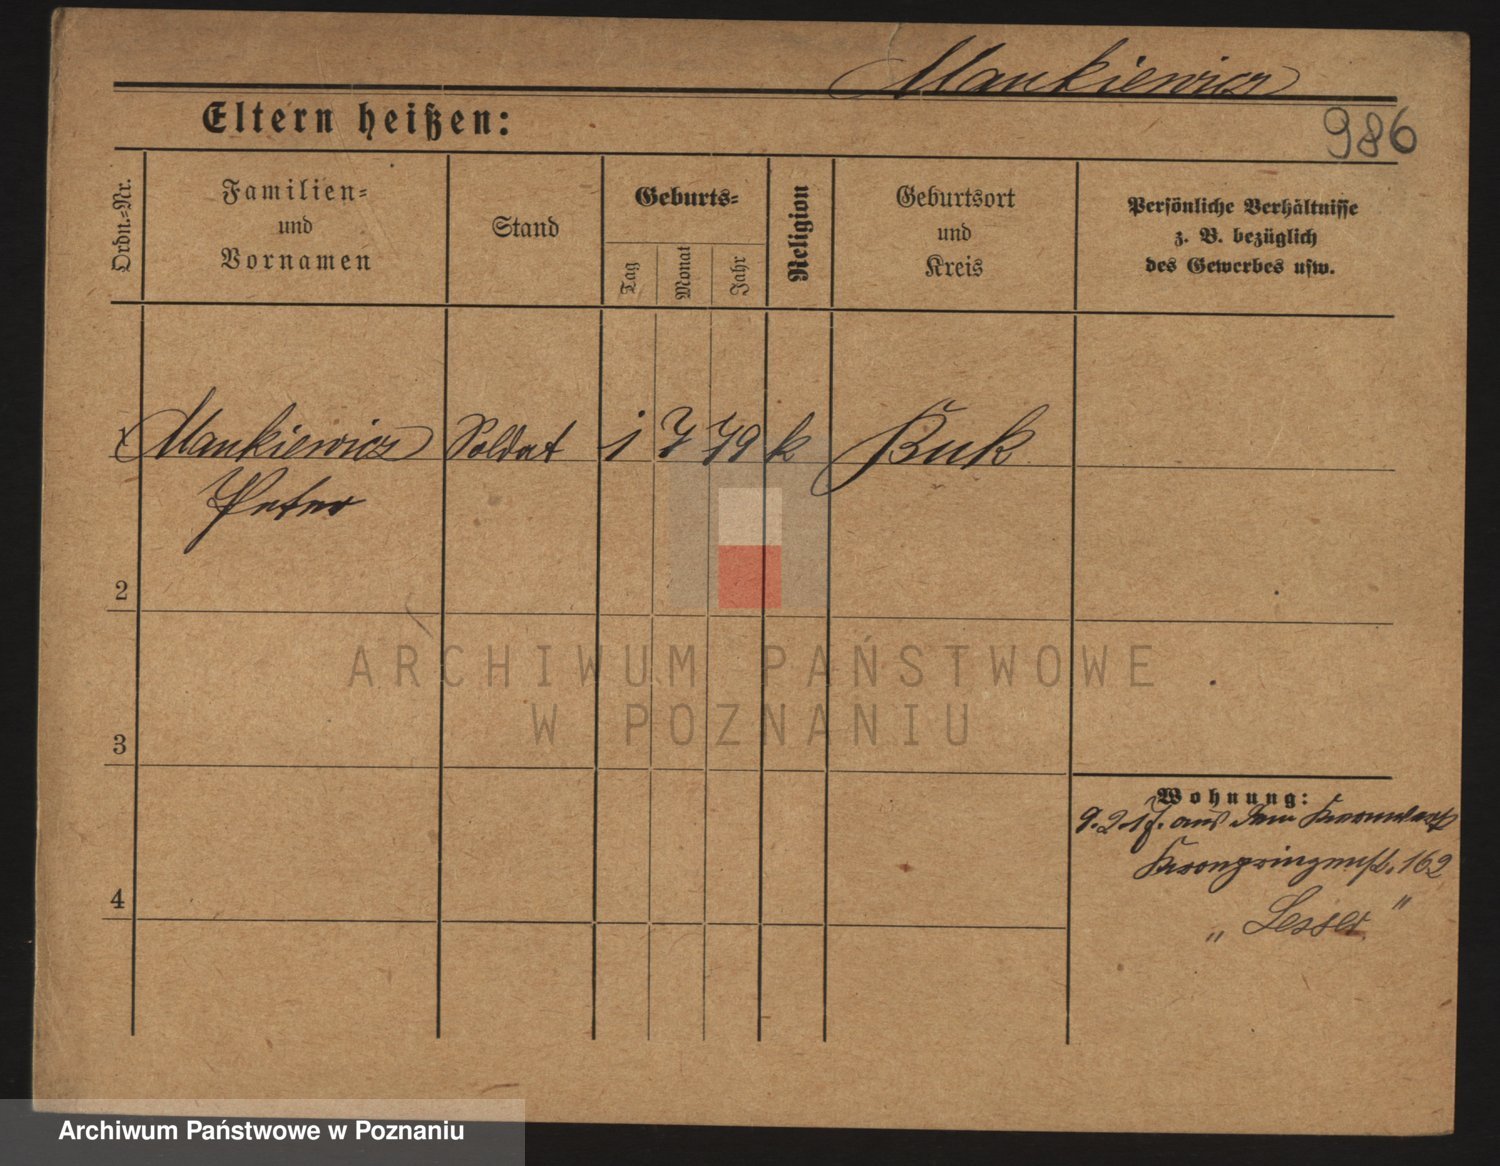 Mankiewicz
986
Eltern heißen:
Ordn.-Nr.
Familien-
und
Vornamen
Stand
Geburts-
Tag
Monat
Jahr
Religion
Geburtsort
und
Kreis
Persönliche Verhältnisse
z. B. bezüglich
des Gewerbes usw.
1 Mankiewicz Soldat 1 7 79 k Buk
Peter
2
3
4
Wohnung:
9.2.17. aus dem
Kronprinzenst. 162
„ Lesser "
ARCHIWUM PAŃSTWOWE
W POZNANIU
Archiwum Państwowe w Poznaniu